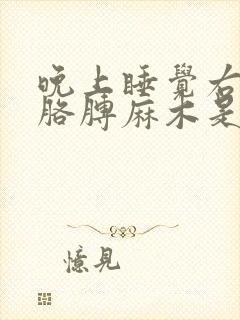 晚上睡覺右
胳膊麻木是
憶見